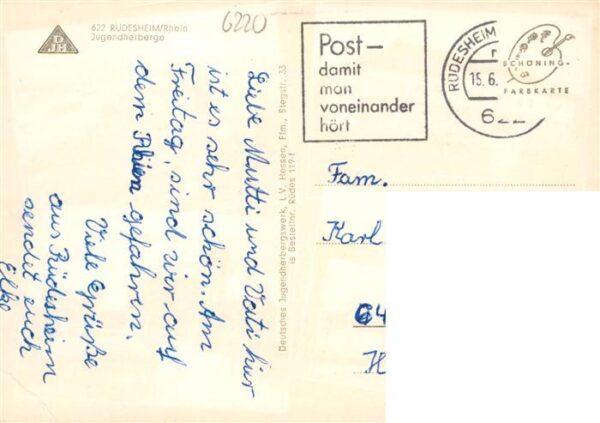 622 RÜDESHEIM/Rhein
Jugendherberge
DJH
6220
Liebe Mutti und Vati hier
ist es sehr schön. Am
Freitag, sind wir auf
dem Rhien gefahren.
Viele Grüße
aus Rüdesheim
sendet euch
Elke
Deutsches Jugendherbergswerk, L.V. Hessen, Ffm., Stegstr. 33
is Bestellnr. Rüdes 119 f
Post —
damit
man
voneinander
hört
RÜDESHEIM
15. 6.
622
SCHÖNING
FARBKARTE
Fam.
Karl
64
H